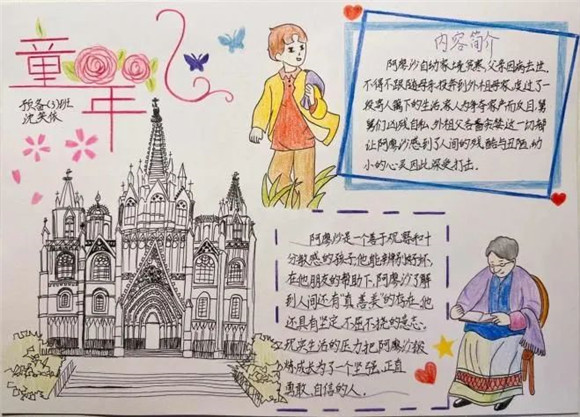 童年
预备(3)班
内容简介
阿廖沙自幼家境贫寒,父亲因病去世,
不得不跟随母亲投奔到外祖母家,度过了一
段寄人篱下的生活,家人为争夺家产而反目,舅
舅们凶残自私、外祖父吝啬贪婪这一切都
让阿廖沙感到了人间的残酷与丑陋,幼
小的心灵因此深受打击。
阿廖沙是一个善于观察和十
分敏感的孩子他能
在他朋友的帮助下,阿廖沙了解
到人间还有真善美的存在,他
还具有坚定、不屈不挠的意志。
现实生活的压力把阿廖沙锻
炼成长为了一个坚强、正直
勇敢、自信的人。